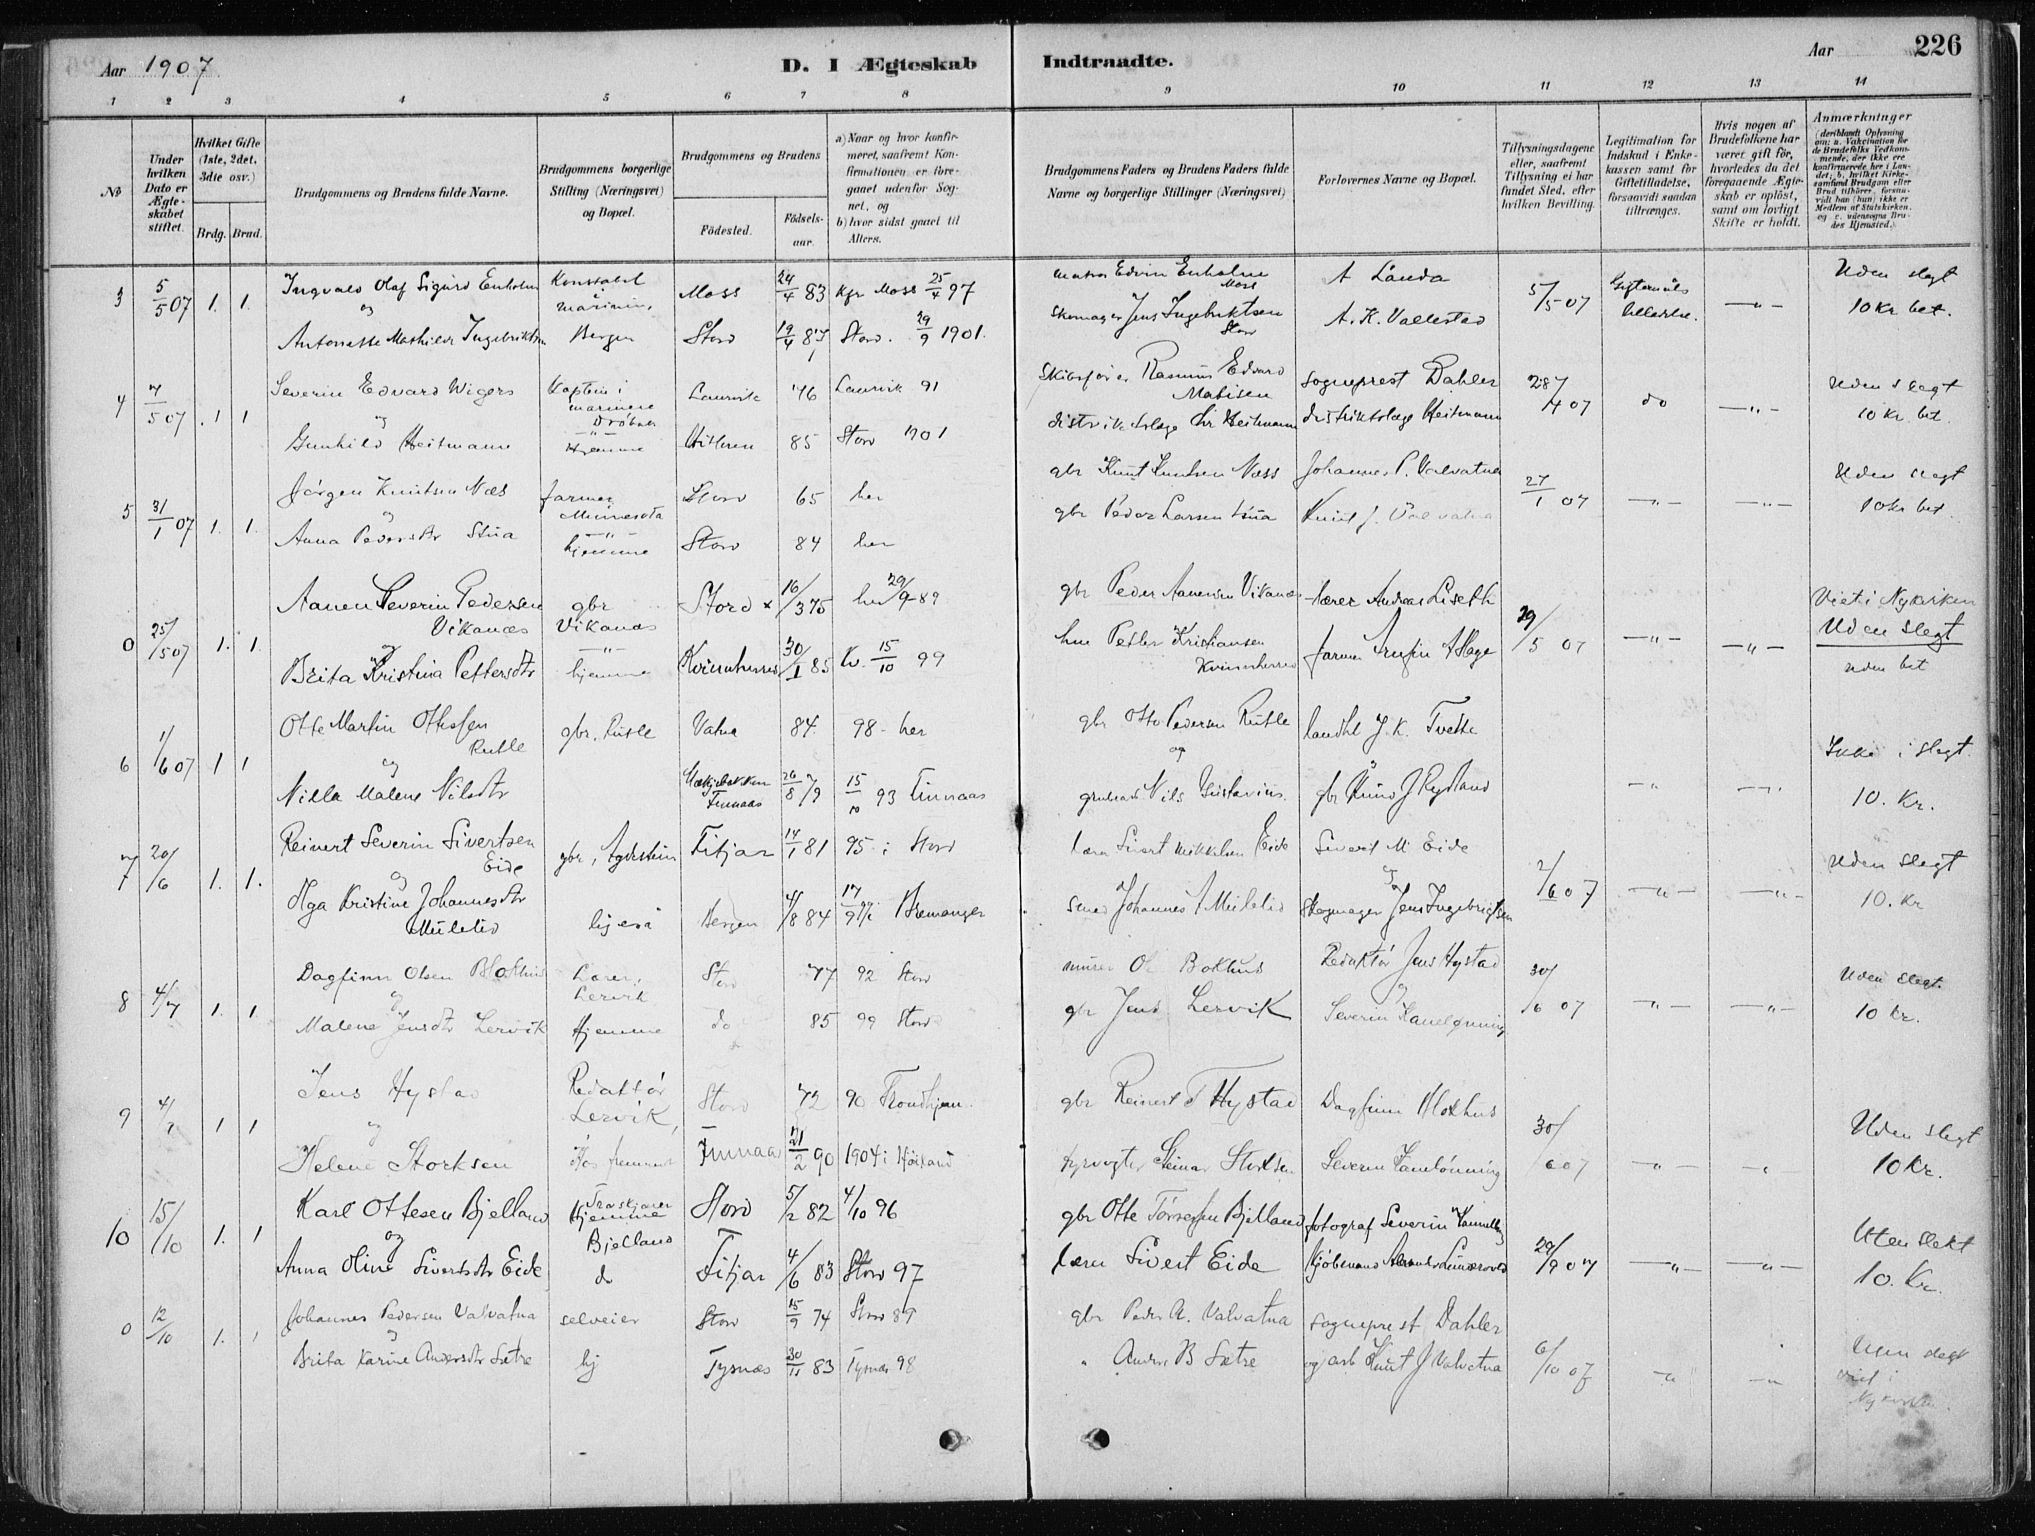 Aar 1907
D. I Ægteskab Indtraadte.
Aar
226
1 2 3 4 5 6 7 8 9 10 11 12 13 14
No
Under hvilken Dato er Ægteskabet stiftet.
Hvilket Gifte (1ste, 2det, 3die osv.)
Brdg. Brud.
Brudgommens og Brudens fulde Navne.
Brudgommens borgerlige Stilling (Næringsvei) og Bopæl.
Brudgommens og Brudens
Fødested.
Fødselsaar.
a) Naar og hvor konfirmeret, saafremt Konfirmationen er foregaaet udenfor Sognet, og
b) hvor sidst gaaet til Alters.
Brudgommens Faders og Brudens Faders fulde Navne og borgerlige Stillinger (Næringsvei)
Forlovernes Navne og Bopæl.
Tillysningsdagene eller, saafremt Tillysning ei har fundet Sted, efter hvilken Bevilling.
Legitimation for Indskud i Enkekassen samt for Giftetilladelse, forsaavidt saadan tiltrænges.
Hvis nogen af Brudefolkene har været gift før, hvorledes da det foregaaende Ægteskab er opløst, samt om lovligt Skifte er holdt.
Anmærkninger (deriblandt Oplysning om: a. Vaccination for de Brudefolks Vedkommende, der ikke ere konfirmerede her i Landet; b. hvilket Kirkesamfund Brudgom eller Brud tilhører, forsaavidt han (hun) ikke er Medlem af Statskirken, og c. udensogns Brudes Hjemsted.)
3 5/5 07 1. 1. Ingvald Olaf Sigurd Enholm Konstabel Moss 24/4 83 Moss 25/4 97 Edvin Enholm Moss A Landa 5/5 07 Uden slegt
og marinen,
Antonette Mathilde Ingebriktsen Bergen Stord 19/4 87 Stord. 29/9 1901. Skomager Jens Ingebriktsen Stord A. K. Vallestad — " — 10 kr bet.
4 7/5 07 1 1 Severin Edvard Wigers Kaptein i marinen Laurvik 76 Laurvik 91 Skibsfører Rasmus Edvard Matisen sogneprest Dahler 28/4 07 do — " — Uden slegt
og
Gunhild Heitmann Hjemme Hitteren 85 Stord 1901 distriktslæge Chr Heitmann distriktslæge Heitmann 10 kr bet
5 31/1 07 1. 1. Jørgen Knutsen Næs farmer Minnesota Stord 65 her gbr Knut Knutsen Næss Johannes P. Valvatna 27/1 07 — " — — " — Uden slegt
og — " —
Anna Pedersdtr Stua hjemme Stord 84 her gbr Peder Larsen Stua Knut J. Valvatna 10 kr bet
0 25/5 07 1. 1. Aanen Severin Pedersen Vikanæs gbr Vikanæs Stord x 16/3 75 her 29/9 89 gbr Peder Aanensen Vikanæs lærer Andreas Liseth 29/5 07 — " — — " — Viet i Nykirken
og — " — Uden slegt
Brita Kristina Pettersdtr hjemme Kvinnherred 30/1 85 Kv. 15/10 99 hm Petter Kristiansen Kvinnherred farmer Arnfin A Hage uden bet
6 1/6 07 1 1 Otte Martin Ottesen Rutle gbr. Rutle Vatna 84. 98 - her gbr Otto Pedersen Rutle landhl J. K. Tvedte — " — — " — Ikke i slegt
og
Nilla Malene Nilsdtr Finnaas 26/8 79 15/10 93 Finnaas Nils Gustavius. gbr Knud J Rydland 10. Kr.
7 20/6 1. 1. Reinert Severin Sivertsen Eide gbr, Agdestein Fitjar 14/1 81 95 i Stord lærer Sivert Mikkelsen Eide Sivert M Eide 2/6 07 — " — — " — Uden slegt
og og
Olga Kristine Johannesdtr Mulelid hjem Bergen 4/8 84 17/9 Bremanger smed Johannes A Mulelid Skomager Jens Ingebrigtsen 10. Kr
8 4/7 1. 1. Dagfinn Olsen Blokhus Lærer, Lervik Stord 77 92 Stord murer Ol Blokhus Redaktør Jens Hystad 30/6 07 — " — — " — Uden slegt.
og og
Malene Jensdtr Lervik Hjemme do 85 99 Stord gbr Jens Lervik Severin Kanelønning 10 kr.
9 4/7 1 1 Jens Hystad Redaktør Lervik, Stord 72 90 Trondhjem. gbr Reinert T Hystad Dagfinn Blokhus 30/6 07 — " — — " — Uden slegt
og
Helene Storksen Finnaas 21/2 90 1904 i fyrvogter Steinar Storksen Severin Kanelønning 10 Kr.
10 15/10 1. 1 Karl Ottesen Bjelland Hjemme Bjelland Stord 5/2 82 4/10 96 gbr Otte Tørresen Bjelland fotograf Severin 29/9 07 — " — — " — Uten slekt
og
Anna Oline Sivertsdtr Eide do Fitjar 4/6 83 Stord 97 lærer Sivert Eide kjøbmand 10. Kr.
0 12/10 1. 1 Johannes Pedersen Valvatna selveier Stord 15/9 74 Stord 89 gbr Peder A. Valvatna sogneprest Dahler 6/10 07 — " — — " — Uden slegt
og
Brita Karine Andersdtr Sætre hj Tysnæs 30/11 83 Tysnæs 98 " Anders B Sætre og arb Knut J Valvatna viet i Nykirken.